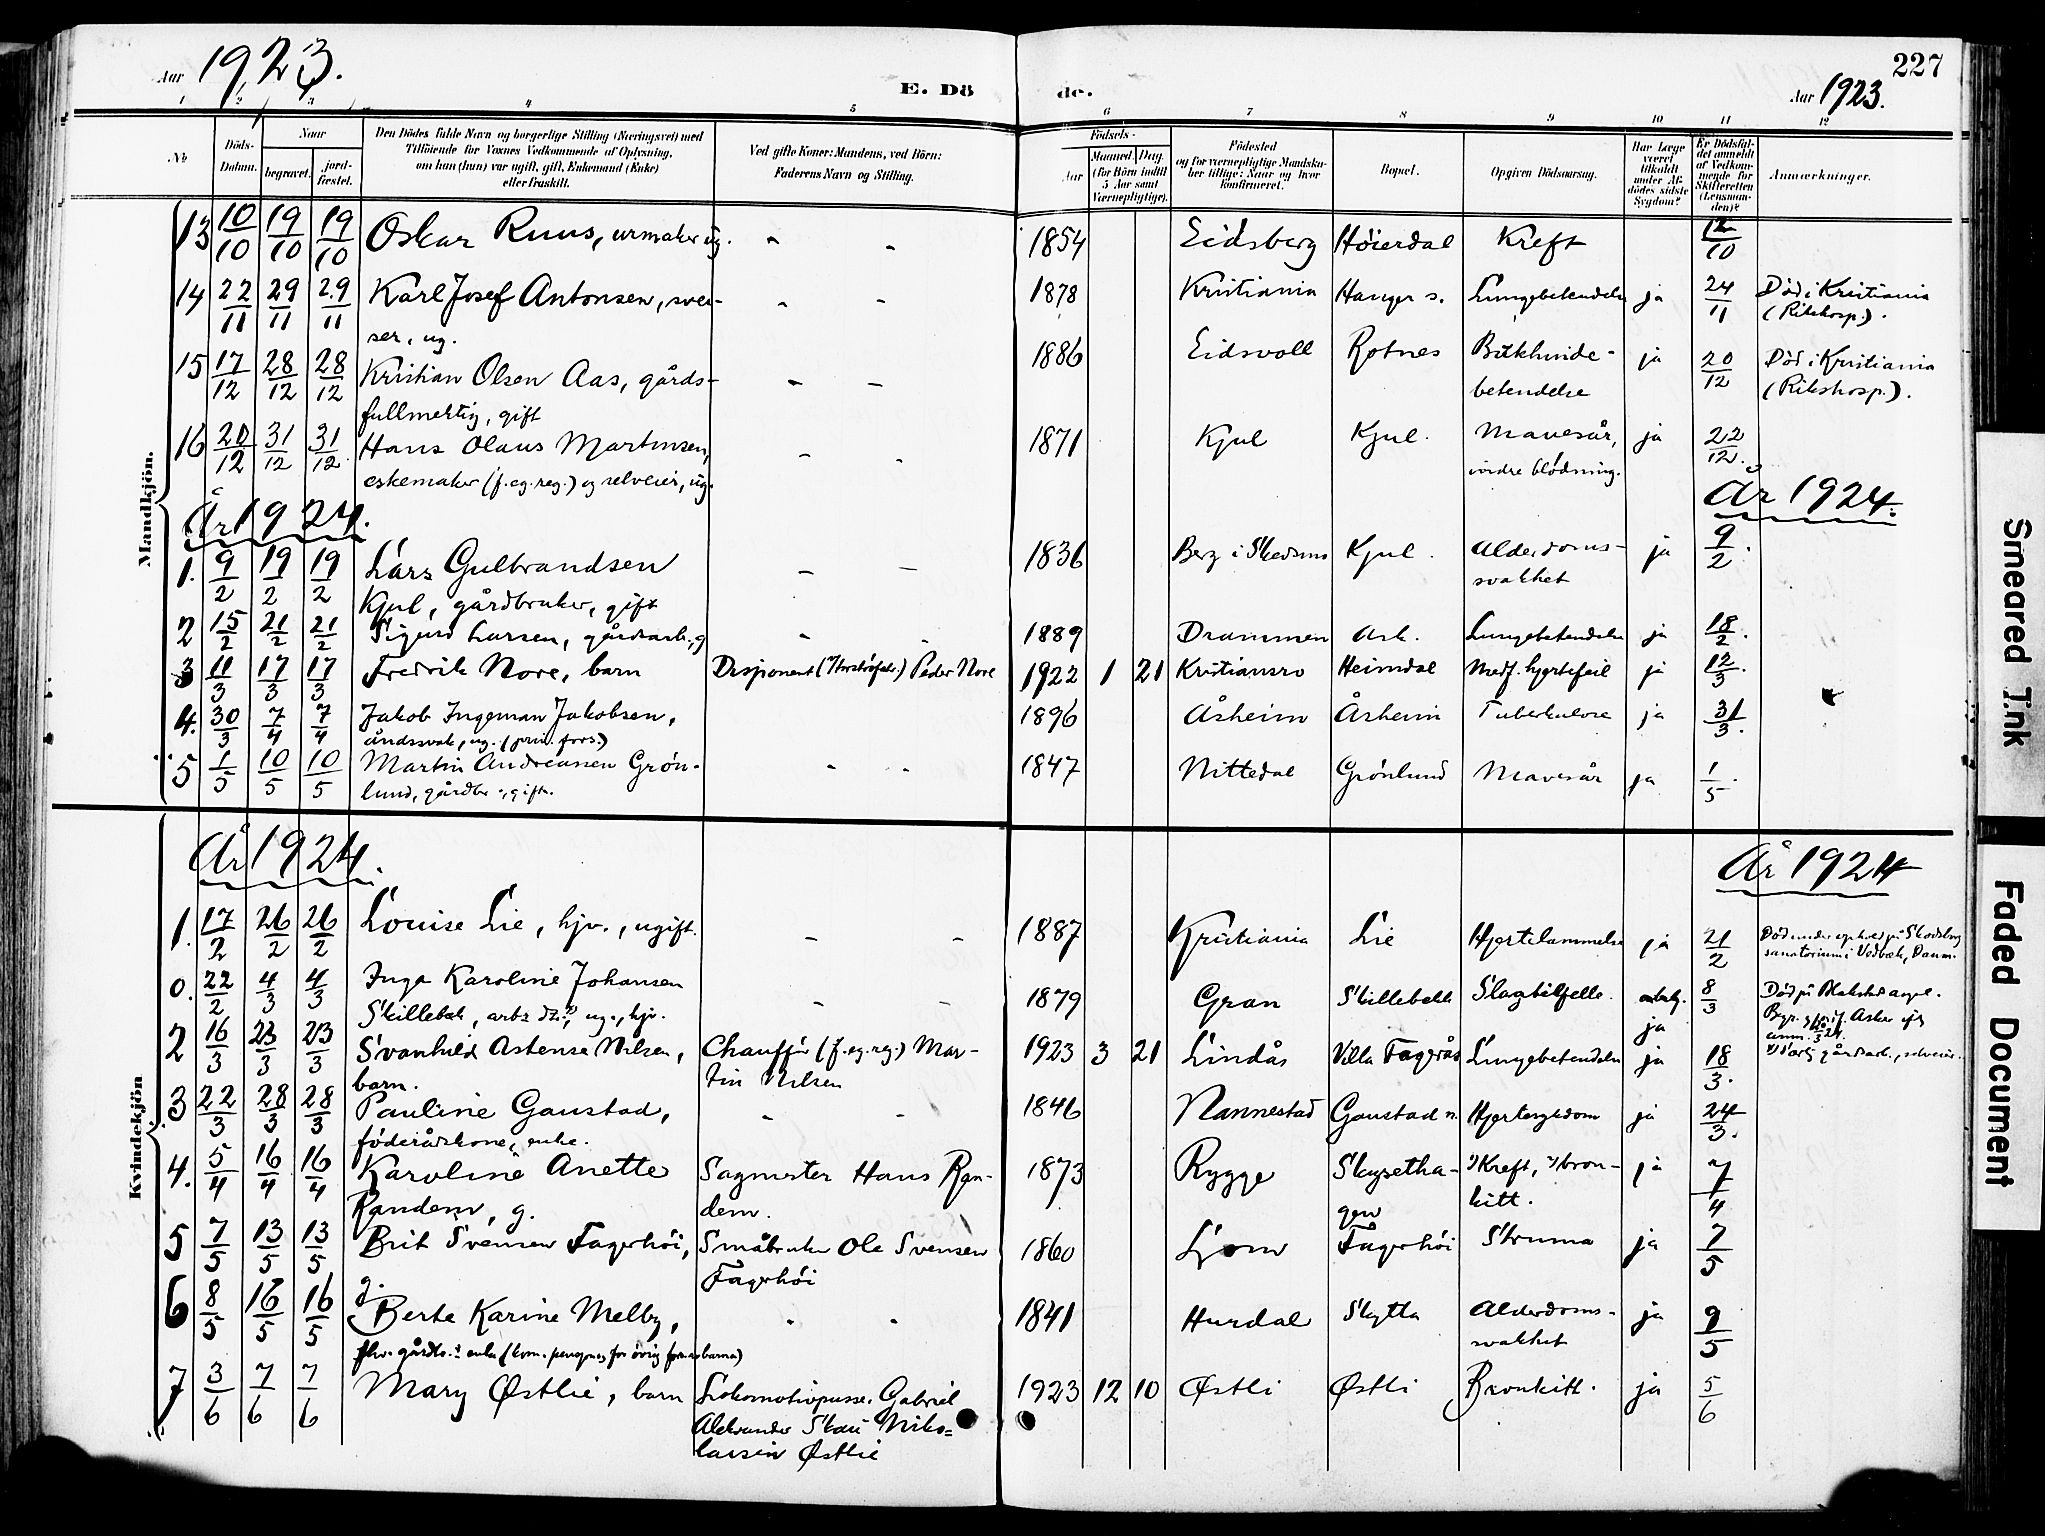 Aar 1923.
E. Dö
de.
227
Aar 1923.
1 2 3 4 5 6 7 8 9 10 11 12
No
Döds-
Datum.
Naar
begravet.
jord-
fæstet.
Den Dödes fulde Navn og borgerlige Stilling (Næringsvei) med
Tilföiende for Voxnes Vedkommende af Oplysning,
om han (hun) var ugift, gift, Enkemand (Enke)
eller fraskilt.
Ved gifte Koner: Mandens, ved Börn:
Faderens Navn og Stilling.
Födsels-
Aar
Maaned. Dag.
(for Börn indtil
5 Aar samt
Værnepligtige).
Födested
og for værnepligtige Mandska-
ber tillige: Naar og hvor
konfirmeret.
Bopæl.
Opgiven Dödsaarsag.
Har Læge
været
tilkaldt
under Af-
dödes sidste
Sygdom?
Er Dödsfal-
det anmeldt
af Vedkom-
mende for
Skifteretten
(Lensman-
den)?
Anmærkninger.
Mandkjön.
13 10/10 19/10 19/10 Oskar Ruus, urmaker ug. " " 1854 Eidsberg Höierdal Kreft 12/10
14 22/11 29/11 29/11 Karl Josef Antonsen, svei- " " 1878 Kristiania Hanger s. Lungebetendelse ja 24/11 Död i Kristiania
ser, ug. (Rikshosp.).
15 17/12 28/12 28/12 Kristian Olsen Aas, gårds- " " 1886 Eidsvoll Rotnes Bukhinde- ja 20/12 Död i Kristiania
fullmektig, gift betendelse (Rikshosp.).
16 20/12 31/12 31/12 Hans Olaus Martinsen, " " 1871 Kjul Kjul. Mavesår, ja 22/12.
eskemaker (f. eg. reg.) og selveier, ug. indre blödning.
År 1924. År 1924.
1. 9/2 19/2 19/2 Lars Gulbrandsen " " 1836 Berg i Skedsmo Kjul. Alderdoms- ja 9/2.
Kjul, gårdbruker, gift svakhet
2 15/2 21/2 21/2 Sigurd Larsen, gårdarb., g " " 1889 Drammen Ask. Lungebetendelse ja 18/2.
3 11/3 17/3 17/3 Fredrik Nore, barn Disponent Peder Nore 1922 1 21 Kristiansro Heimdal Medf. hjertefeil ja 12/3.
4. 30/3 7/4 7/4 Jakob Ingeman Jakobsen, 1896 Åsheim Åsheim Tuberkulose ja 31/3.
åndssvak, ug. (priv. fors.)
5 1/5 10/5 10/5 Martin Andreassen Grön- " " 1847 Nittedal Grönlund Mavesår ja 1/5.
lund, gårdbr., gift.
Kvindekjön
År 1924. År 1924
1. 17/2 26/2 26/2 Louise Lie, hjv., ugift. " " 1887 Kristiania Lie Hjertelammelse ja 21/2 Död under ophold på Skodsborg
sanatorium i Vedbæk, Danm.
0. 22/2 4/3 4/3 Inga Karoline Johansen " " 1879 Gran Skillebekk Slagtilfelle. ja 8/3 Död på Blakstad asyl.
Skillebek, arbs dtr., ug., hjv.
2 16/3 23/3 23/3 Svanhild Astense Nilsen, Chaufför (f. eg. reg.) Mar- 1923 3 21 Lindås Villa Fagerås Lungebetendelse ja 18/3.
barn. tin Nilsen
3 22/3 28/3 28/3 Pauline Gaustad, " " 1846 Nannestad Gaustad n. Hjertesykdom ja 24/3.
föderådskone, enke.
4. 5/4 16/4 16/4 Karoline Anette Sagmester Hans Ran- 1873 Rygge Skysetha- 1) Kreft, 2) bron- ja 7/4
Randem, g. dem. gen kitt.
5 7/5 13/5 13/5 Brit Svensen Fagerhöi, Småbruker Ole Svensen 1860 Ljom Fagerhöi Struma ja 7/5
g. Fagerhöi
6 8/5 16/5 16/5 Berte Karine Melby, " " 1841 Hurdal Skytta Alderdoms- ja 9/5
fhv. gårdbr.s enke svakhet
7 3/6 7/6 7/6 Mary Østlie, barn Lokomotivpusser Gabriel 1923 12 10 Østli Østli Bronkitt. ja 5/6
Aleksander Skau Niko-
laisen Østlie
Smeared Ink
Faded Document